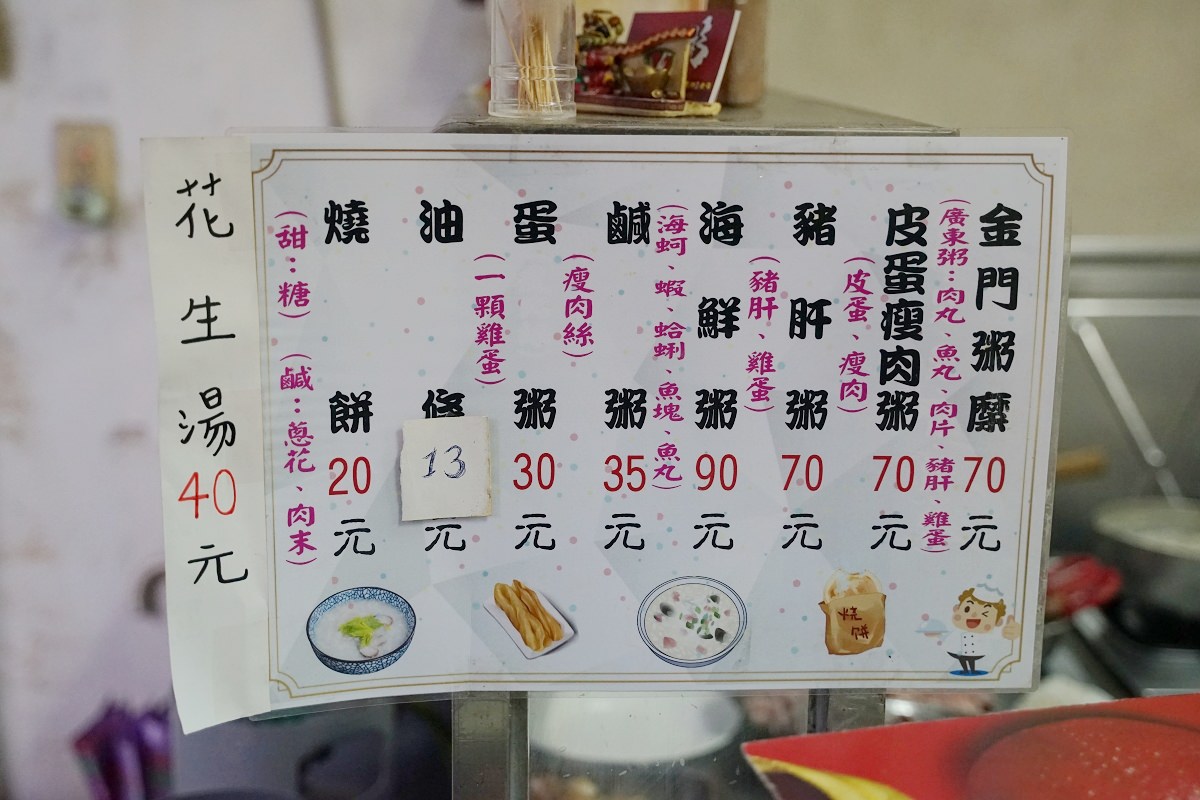 金門粥糜70元
(廣東粥：肉丸、魚丸、肉片、豬肝、雞蛋)
皮蛋瘦肉粥70元
(皮蛋、瘦肉)
豬肝粥70元
(豬肝、雞蛋)
海鮮粥90元
(海蚵、蝦、蛤蜊、魚塊、魚丸)
鹹粥35元
(瘦肉絲)
蛋粥30元
(一顆雞蛋)
油條13元
燒餅20元
(甜：糖)(鹹：蔥花、肉末)
花生湯40元
烧饼